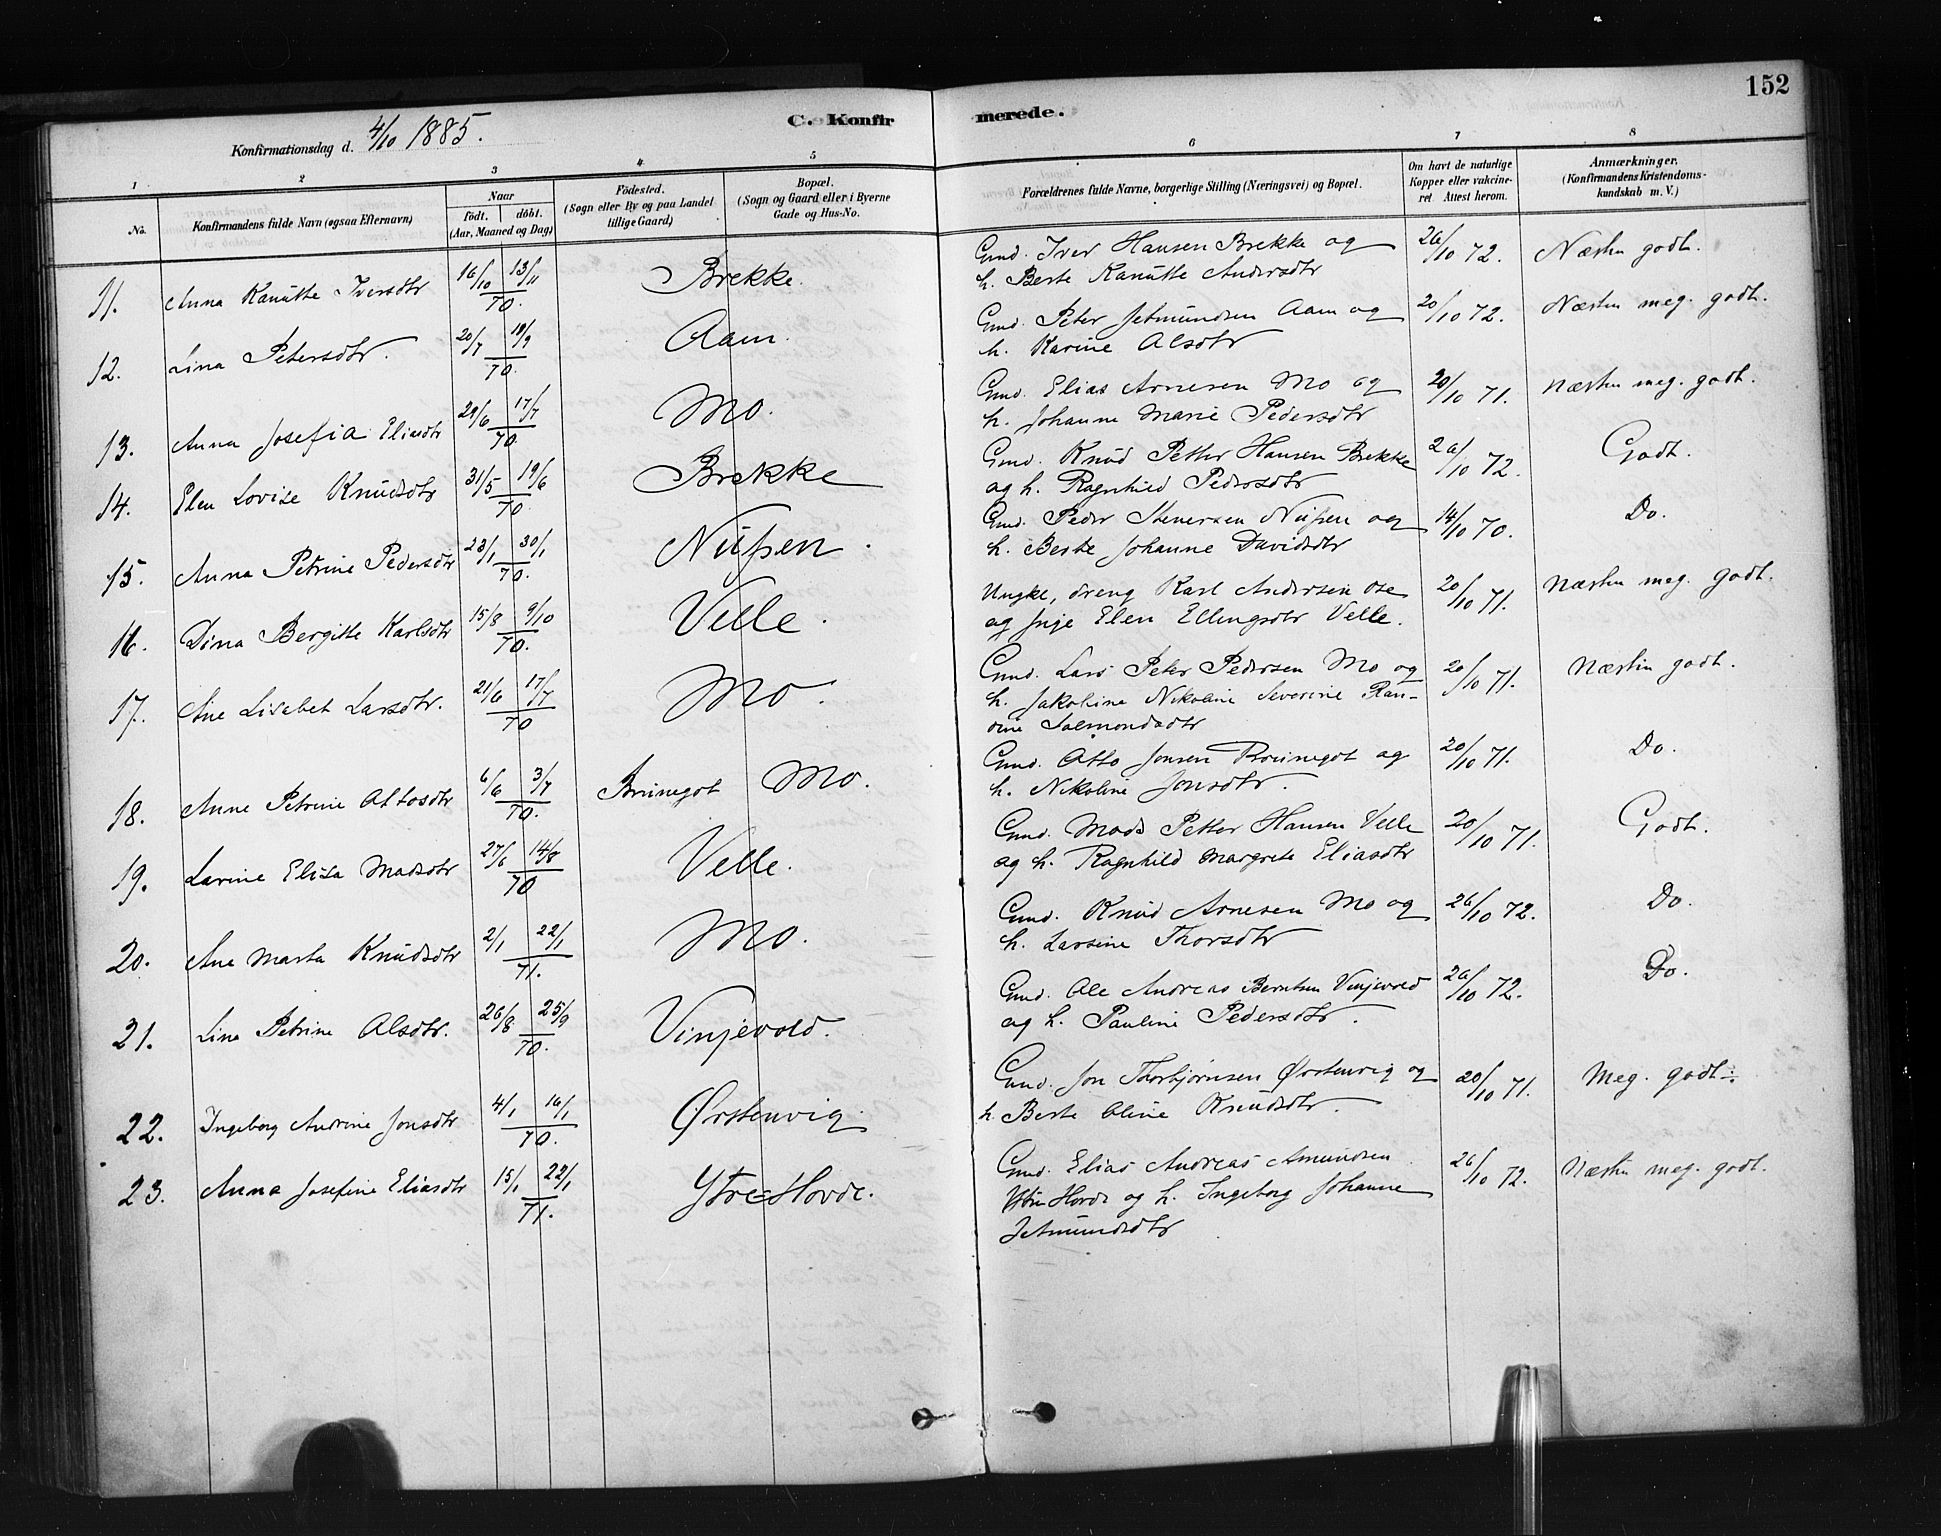 152
C. Konfirmerede.
Konfirmationsdag d. 4/10 1885.
1 2 3 4 5 6 7 8
No. Konfirmandens fulde Navn (ogsaa Efternavn) Naar født. døbt. (Aar, Maaned og Dag) Fødested. (Sogn eller By og paa Landet tillige Gaard) Bopæl. (Sogn og Gaard eller i Byerne Gade og Hus-No. Forældrenes fulde Navne, borgerlige Stilling (Næringsvei) og Bopæl. Om havt de naturlige Kopper eller vakcineret Attest herom. Anmærkninger, (Konfirmandens Kristendomskundskab m. V.)
11. Anna Kanutte Iversdtr 16/10 13/11 70. Brekke. Gmd. Iver Hansen Brekke og 26/10 72. Næsten godt.
h. Berte Kanutte Andersdtr
12. Lina Petersdtr. 20/7 18/9 70. Aam. Gmd. Peter Jetmundsen Aam og 20/10 72. Næsten meg. godt.
h. Karine Olsdtr
13. Anna Josefia Eliasdtr 29/6 17/7 70. Mo. Gmd. Elias Arnesen Mo og 20/10 71. Næsten meg. godt.
h. Johanne Marie Pedersdtr
14. Elen Lovise Knudsdtr 31/5 19/6 70. Brekke Gmd. Knud Petter Hansen Brekke 26/10 72. Godt.
og h. Ragnhild Pedersdtr
15. Anna Petrine Pedersdtr 23/1 30/1 70. Nupen. Gmd. Peder Stenersen Nupen og 14/10 70. Do.
h. Berte Johanne Davidsdtr
16. Dina Bergitte Karlsdtr 15/8 9/10 70. Velle. Ungke, dreng Karl Andersen Ose 20/10 71. Næsten meg. godt.
og pige Elen Ellingsdtr Velle.
17. Ane Lisebet Larsdtr. 21/6 17/7 70 Mo. Gmd. Lars Peter Pedersen Mo og 20/10 71. Næsten godt.
h. Jakobine Nikoline Severine Ran-
dine Salmondsdtr
18. Anne Petrine Ottosdtr 6/6 3/7 70. Brunegot Mo. Gmd. Otto Jonsen Bruunegot og 20/10 71. Do.
h. Nikoline Jonsdtr.
19. Larine Elisa Madsdtr 27/6 14/8 70 Velle. Gmd. Mads Petter Hansen Velle 20/10 71. Godt.
og h. Ragnhild Margrete Eliasdtr
20. Ane Marta Knudsdtr 2/1 22/1 71. Mo. Gmd. Knud Arnesen Mo og 26/10 72. Do.
h. Larsine Thorsdtr
21. Lina Petrine Olsdtr. 26/8 25/9 70. Vinjevold. Gmd. Ole Andreas Berntsen Vinjevold 26/10 72. Do.
og h. Pauline Pedersdtr.
22. Ingeborg Andrine Jonsdtr 4/1 16/1 70. Ørstenvig. Gmd. Jon Thorbjørnsen Ørstenvig og 20/10 71. Meg. godt÷.
h. Berte Oline Knudsdtr.
23. Anna Josefine Eliasdtr 15/1 22/1 71. Ytre=Hovde. Gmd. Elias Andreas Amundsen 26/10 72. Næsten meg. godt.
Ytre Hovde og h. Ingeborg Johanne
Jetmundsdtr